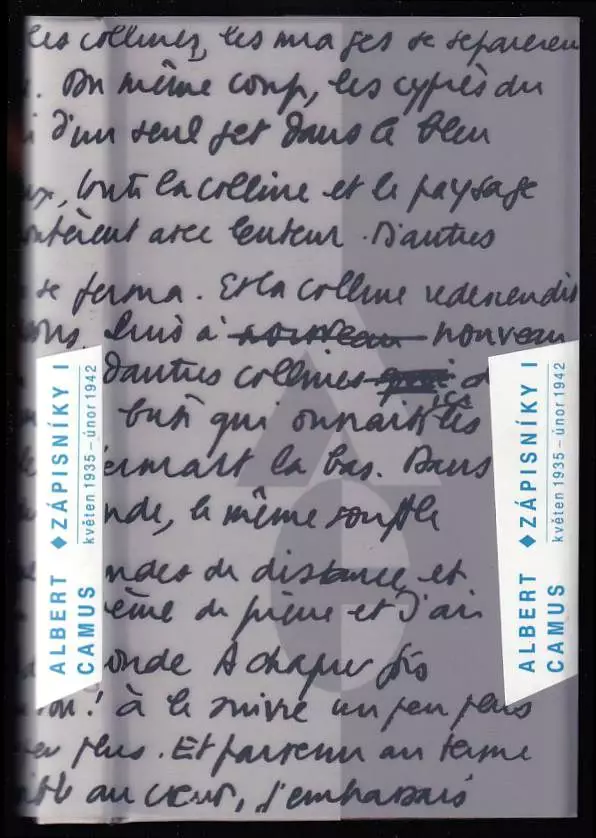 les collines, les nuages se séparèren
. Du même coup, les cyprès du
d'un seul jet dans le bleu
, toute la colline et le paysage
ontèrent avec lenteur. D'autres
se ferma. Et la colline redescendit
puis à nouveau nouveau
d'autres collines
qui ouvrait les
fermait là bas. Dans
nde, le même souffle
ndes de distance, et
ème de pierre et d'air
onde A chaque fois
! à le suivre un peu plus
plus. Et parvenu au terme
au cœur, j'embrassais
ALBERT ◆ ZÁPISNÍKY I
CAMUS květen 1935 – únor 1942
ALBERT ◆ ZÁPISNÍKY I
CAMUS květen 1935 – únor 1942